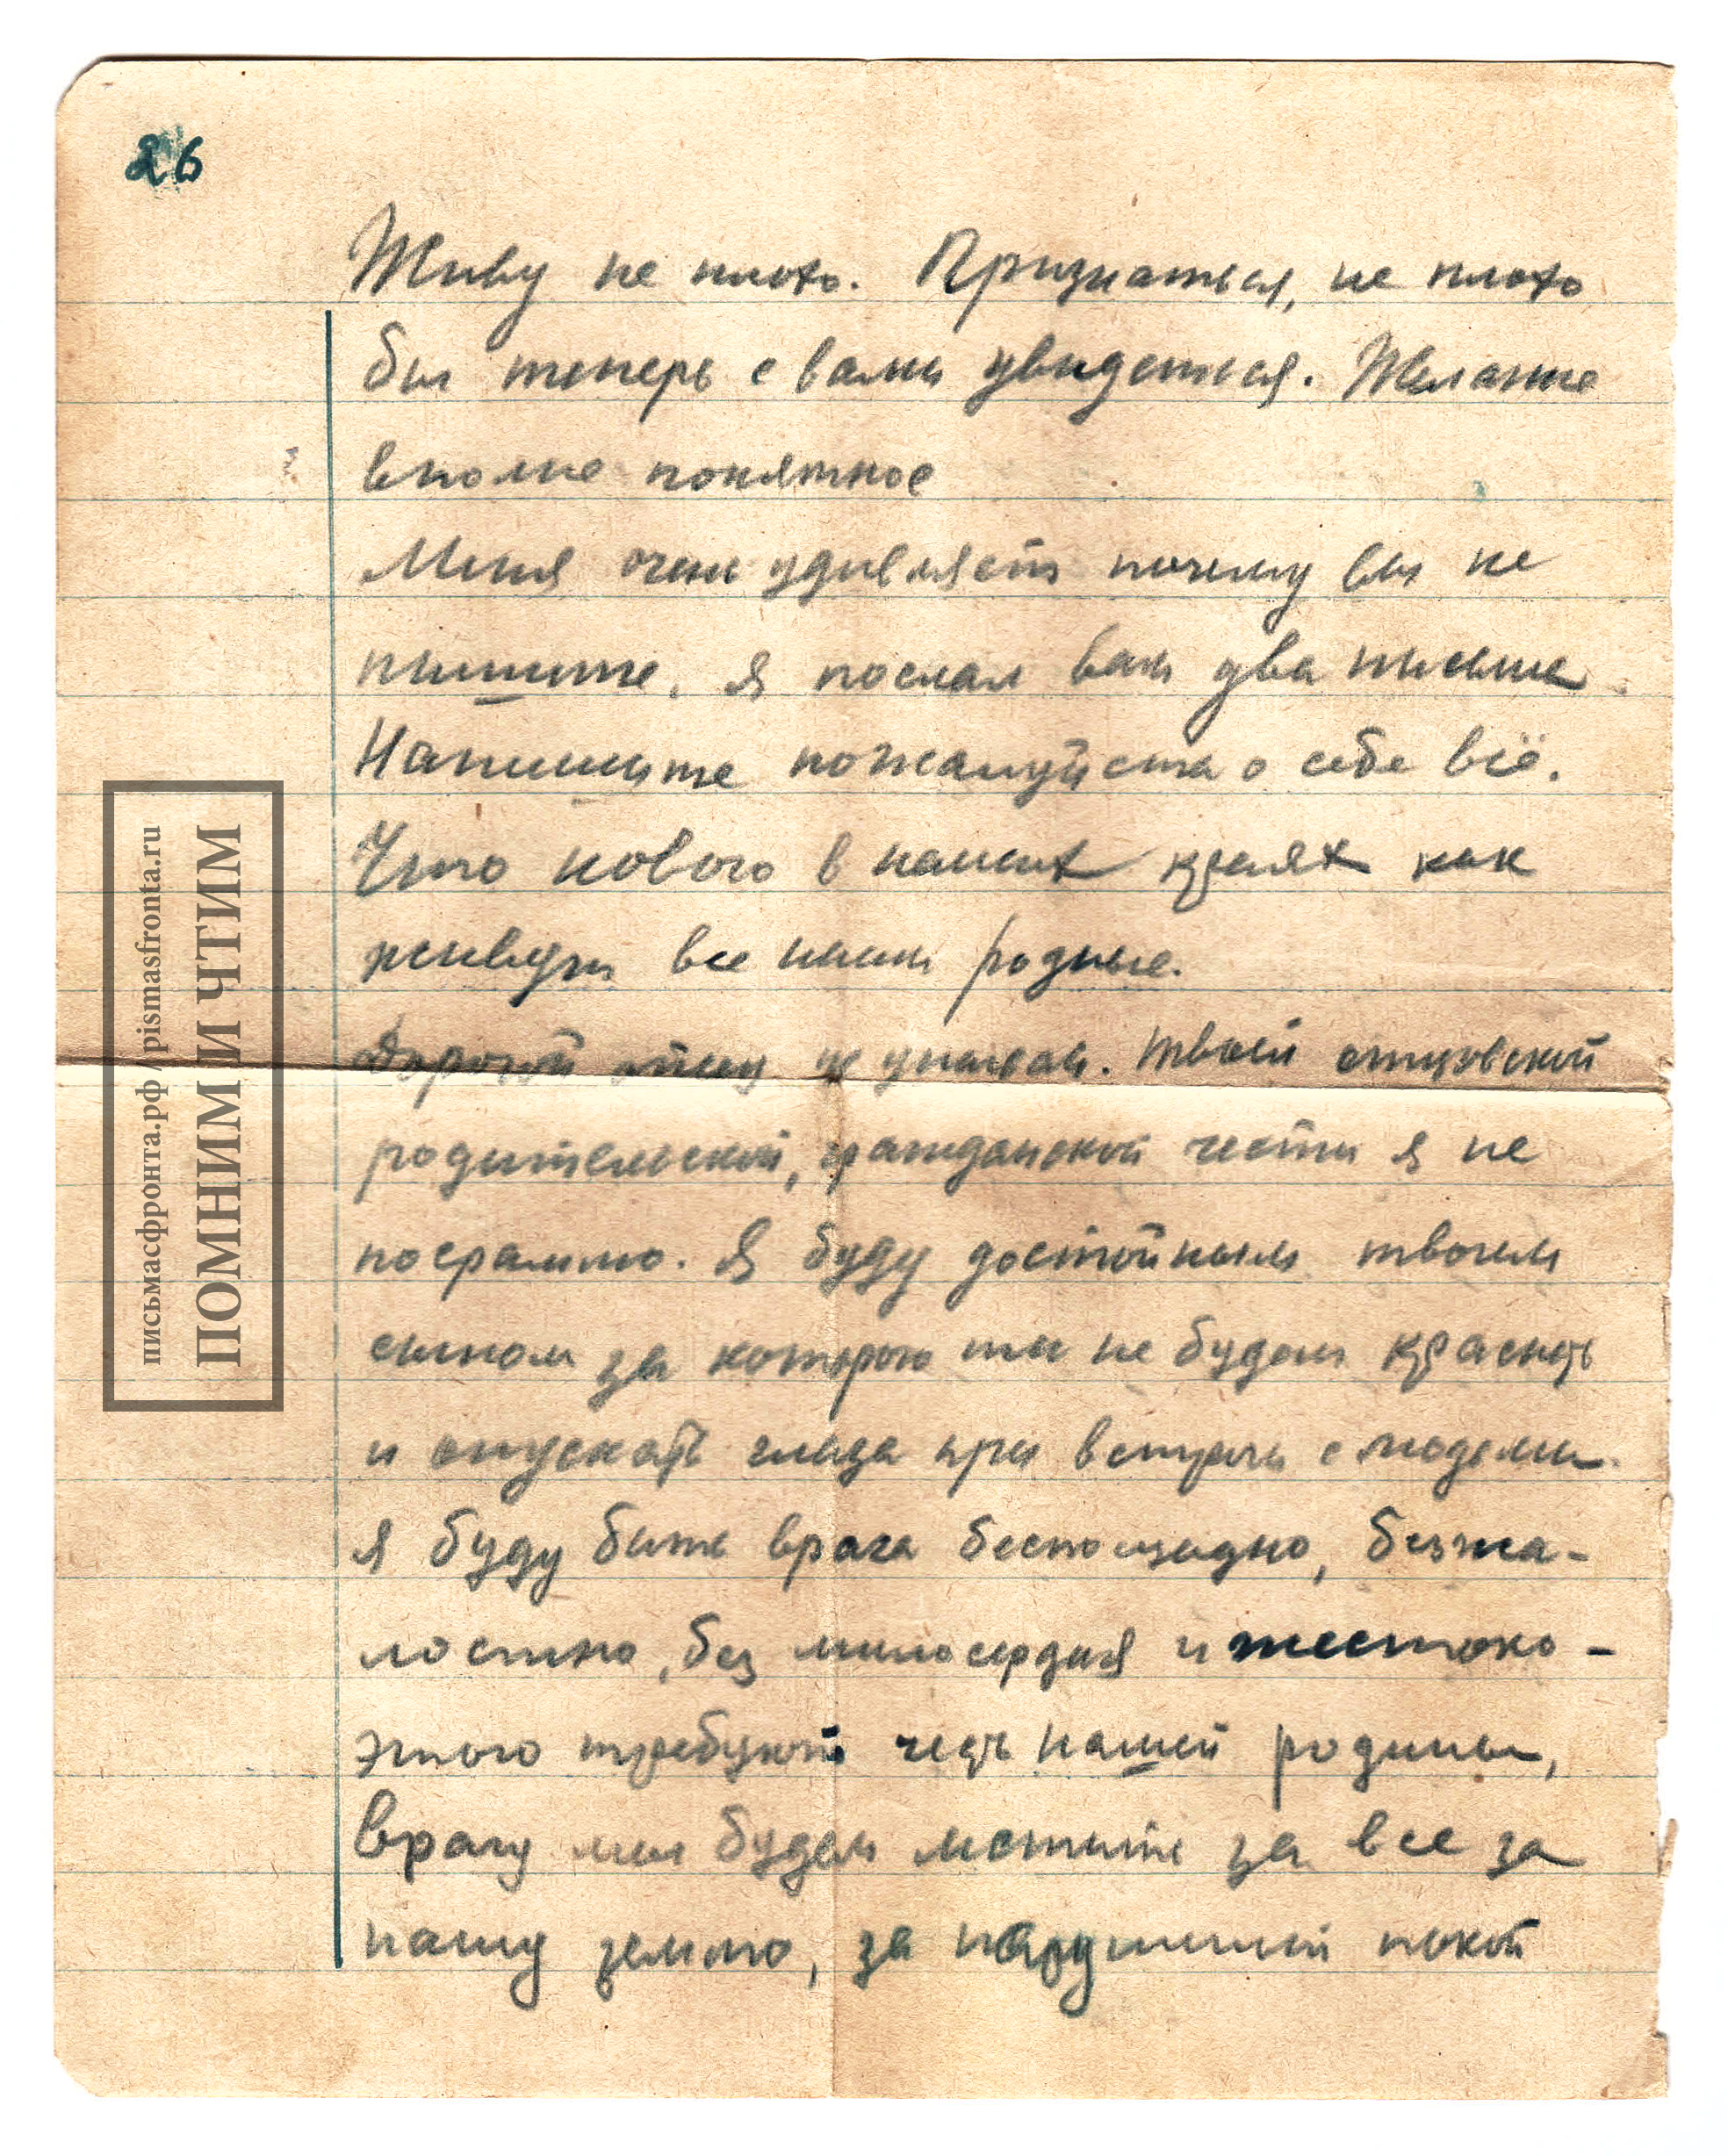 26
Живу не плохо. Признаться, не плохо
бы теперь с вами увидеться. Желание
вполне понятное
Меня очень удивляет почему вы не
пишите. Я послал вам два письма.
Напишите пожалуйста о себе всё.
Что нового в наших краях как
живут все наши родные.
Дорогой отец не унывай. Твоей отцовской
родительской, гражданской чести я не
посрамлю. Я буду достойным твоим
сыном за которого ты не будешь краснеть
и опускать глаза при встрече с людьми.
Я буду бить врага беспощадно, безжа-
лостно, без милосердия и жестоко -
этого требуют честь нашей родины,
врагу мы будем мстить за все за
нашу землю, за нарушеный покой
письмасфронта.рф / pismasfronta.ru
ПОМНИМ И ЧТИМ